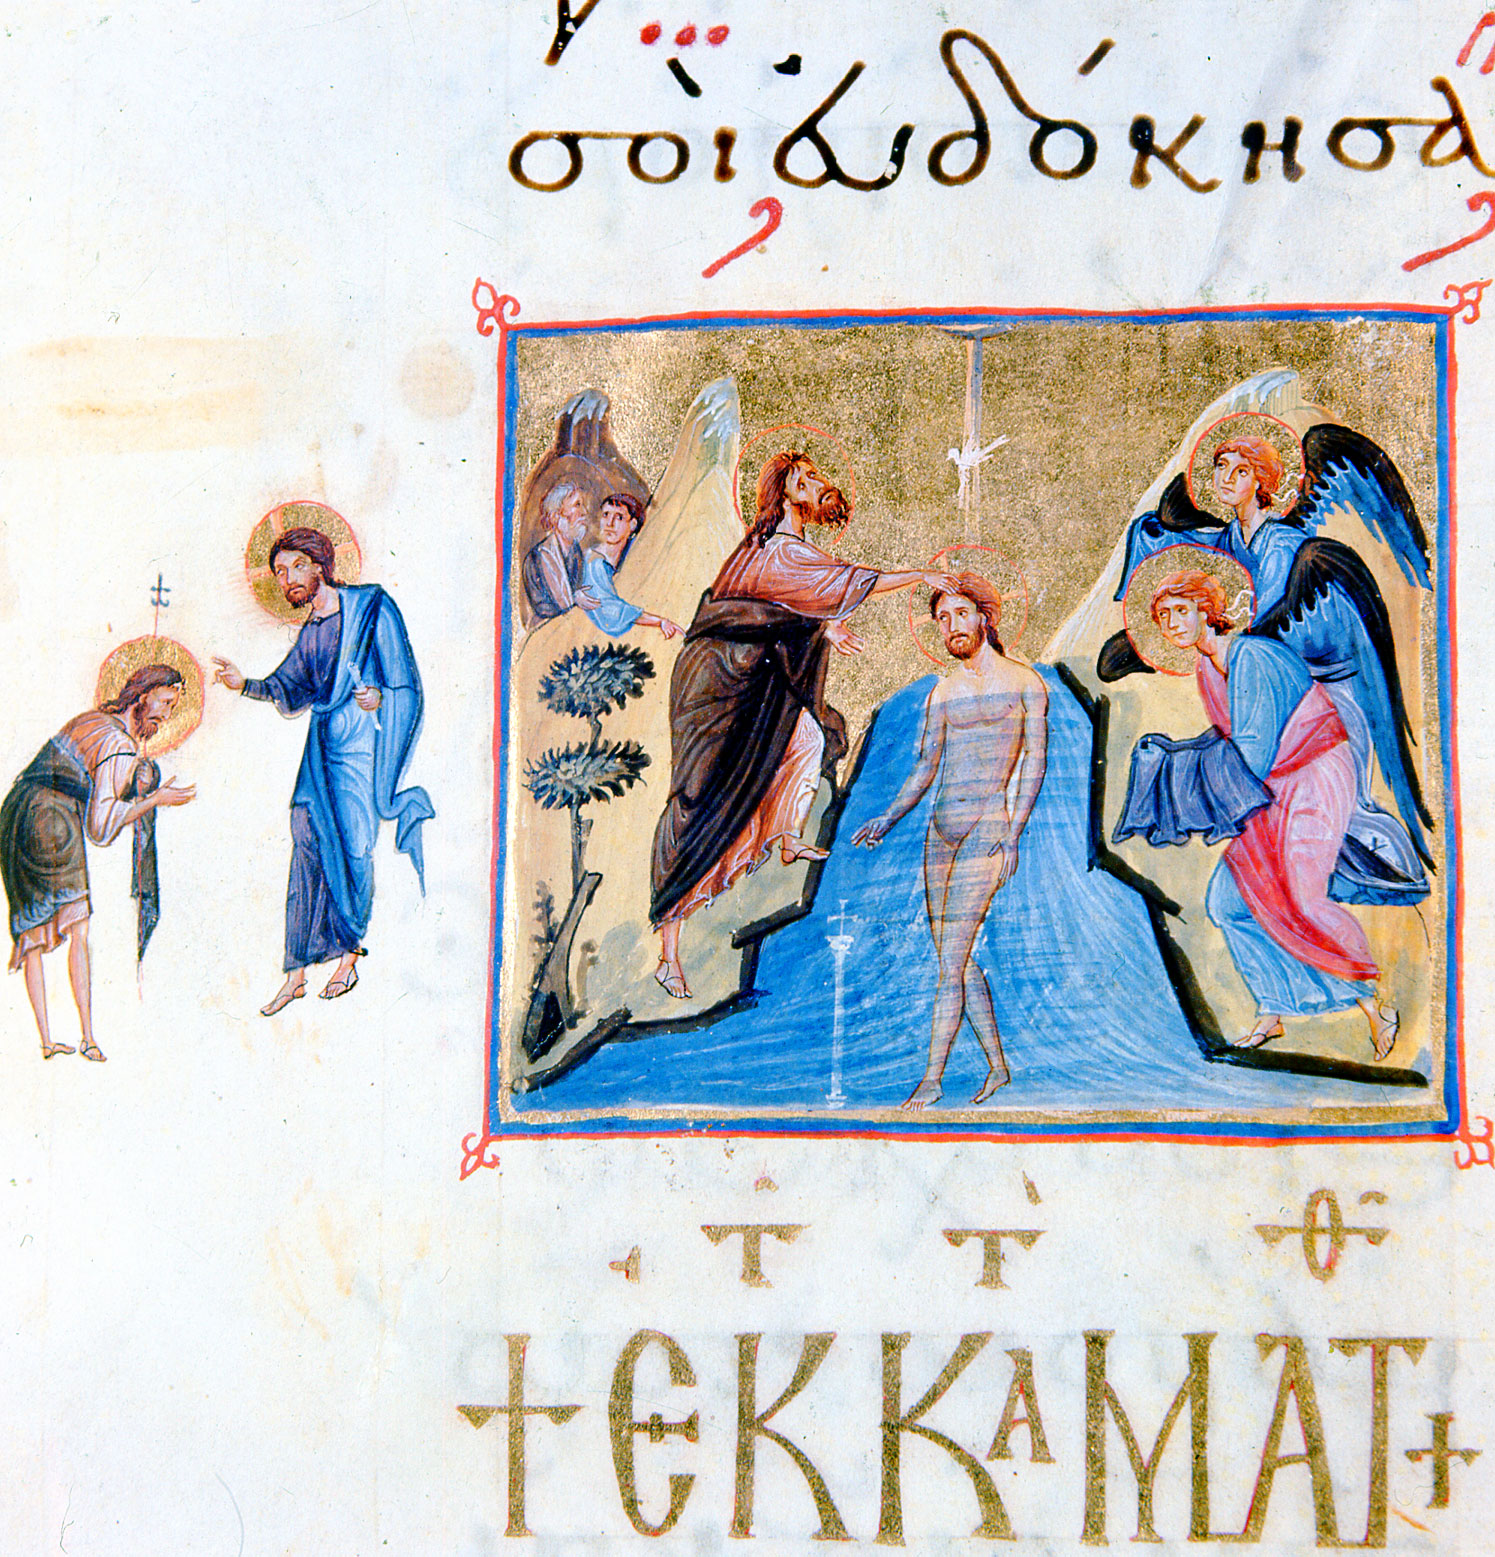 σοὶ εὐδόκησα
Τ Τ Θ
+ ΕΚ ΚΑ ΜΑΤ +